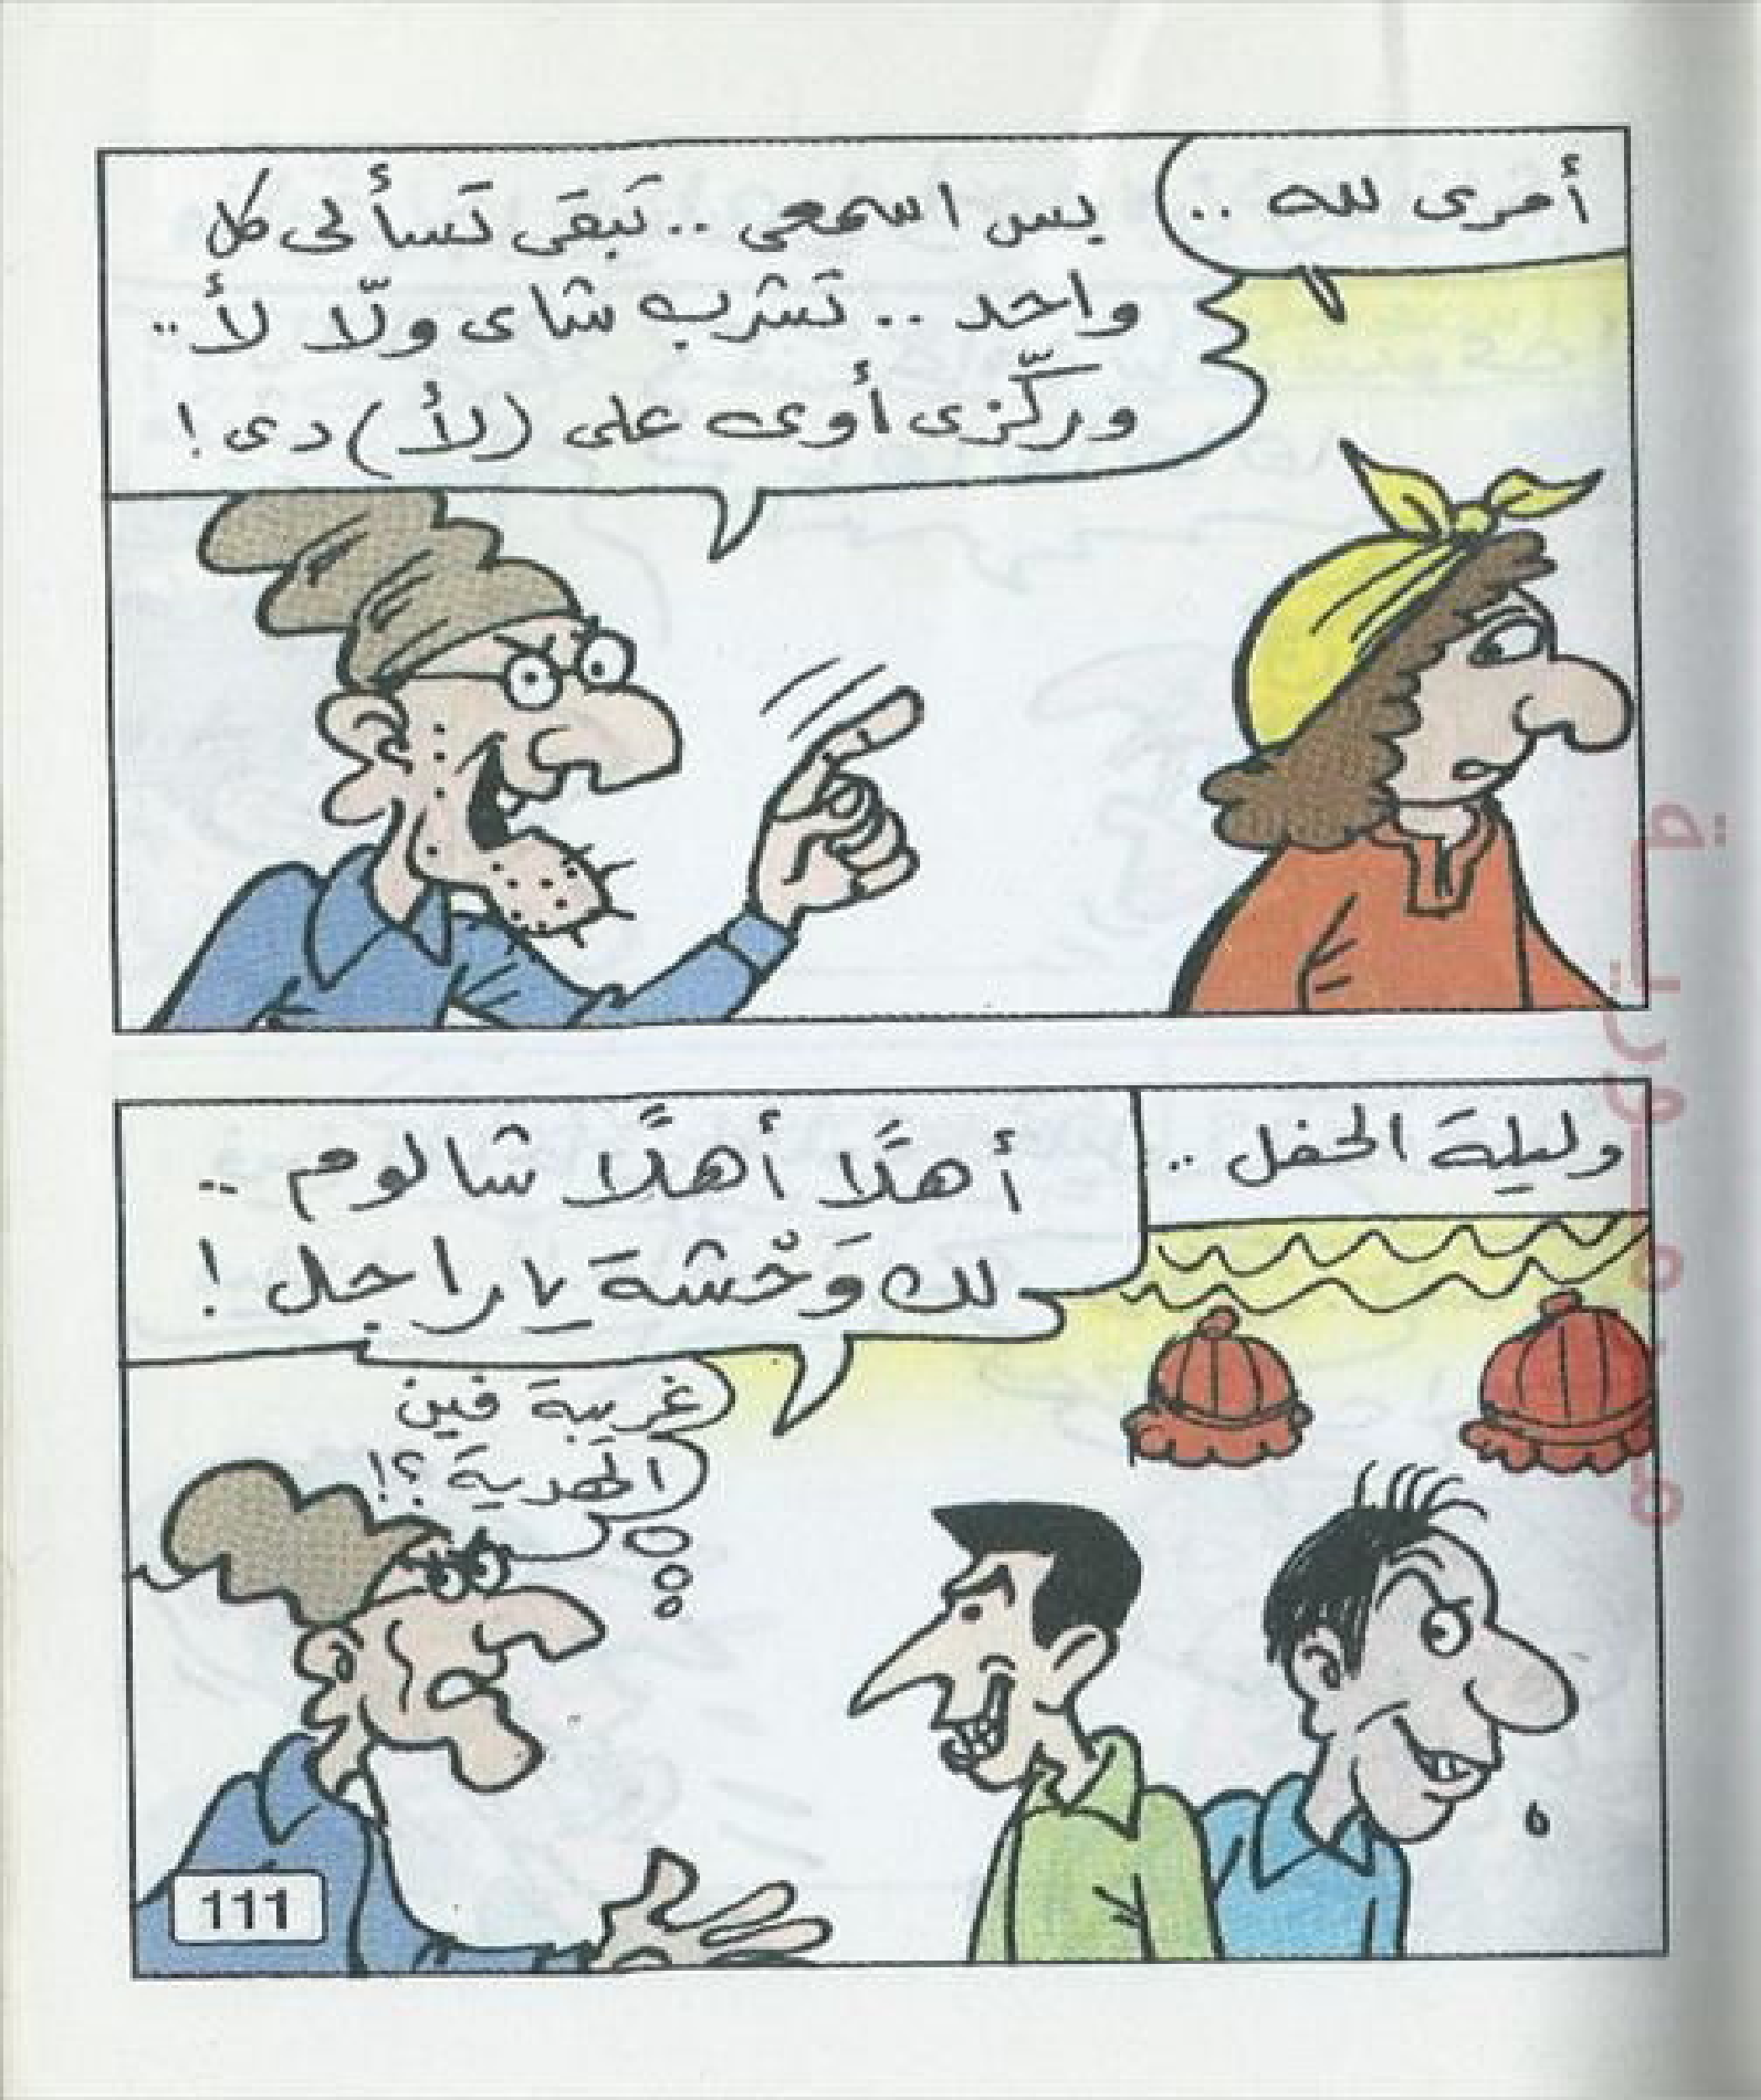 أمرى لله ..
بس اسمعى .. تَبقَى تَسأَلى كل
واحد .. تَشرب شاى ولّا لأ ..
وركّزى أوى على (لأ) دى !
وليلة الحفل ..
أهلًا أهلًا شالوم ..
لك وَحْشة يا راجل !
غريبة فين
الهدية ؟!
111